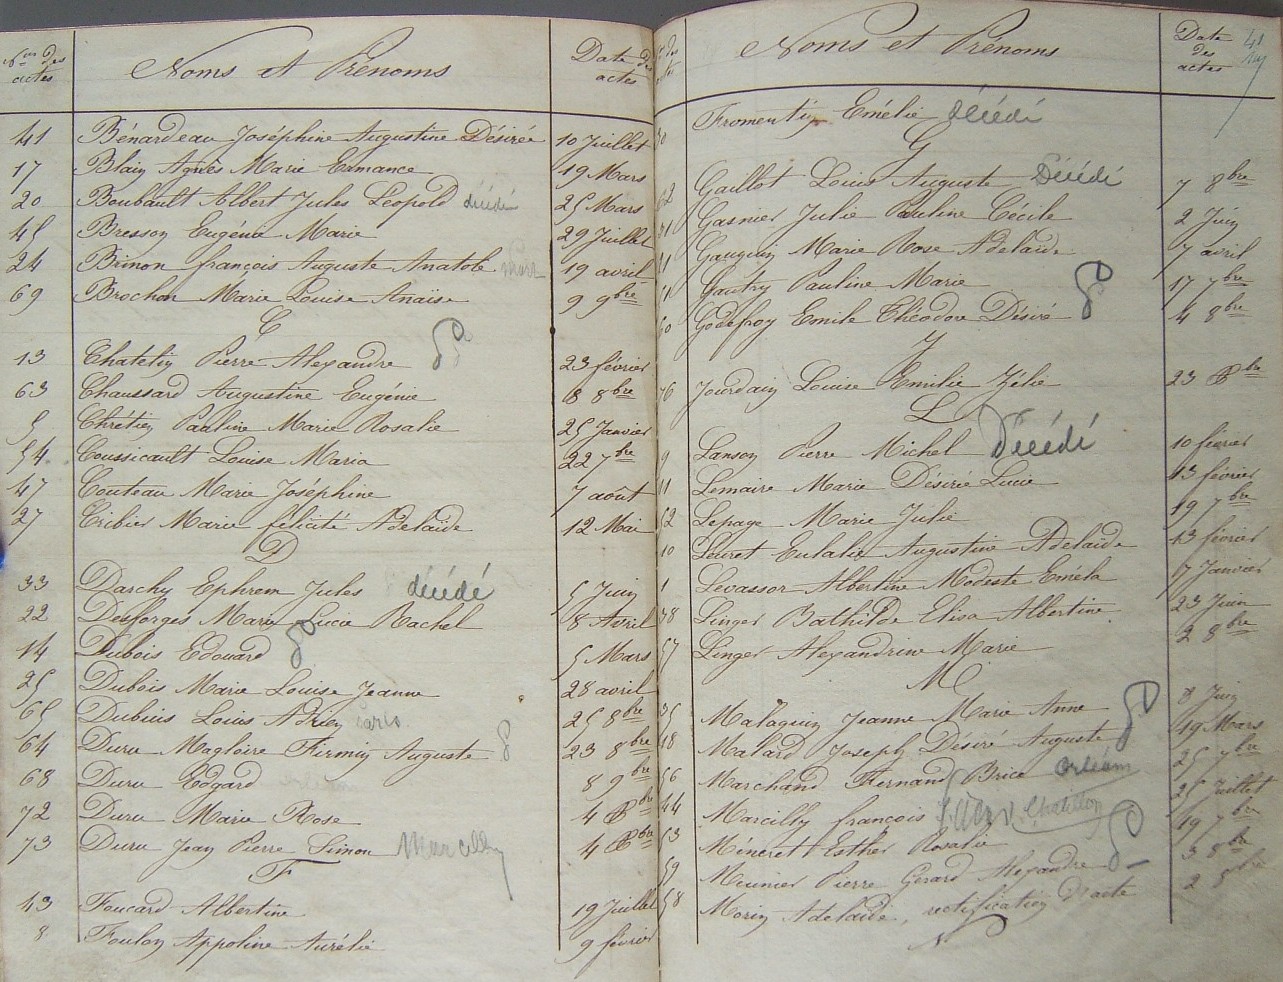 Nos des actes Noms et Prénoms Date des actes
41 Bénardeau Joséphine Augustine Désirée 10 Juillet
17 Blain Agnès Marie Ermance 19 Mars
20 Boubault Albert Jules Léopold décédé 25 Mars
45 Bresson Eugénie Marie 29 Juillet
24 Brinon françois Auguste Anatole 19 avril
69 Brochon Marie Louise Anaïse 9 9bre
C
13 Chatelin Pierre Alexandre 23 février
63 Chaussard Augustine Eugénie 8 8bre
5 Chrétien Pauline Marie Rosalie 25 Janvier
54 Coussicault Louise Maria 22 7bre
47 Couteau Marie Joséphine 7 août
27 Cribier Marie félicité Adelaïde 12 Mai
D
33 Darchy Ephrem Jules décédé 5 Juin
22 Desforges Marie Lucie Rachel 8 Avril
14 Dubois Edouard 5 Mars
25 Dubois Marie Louise Jeanne 28 avril
65 Dubuis Louis Adrien 25 8bre
64 Duru Magloire Firmin Auguste 23 8bre
68 Duru Edgard 8 9bre
72 Duru Marie Rose 4 Xbre
73 Duru Jean Pierre Simon Marcilly 4 Xbre
F
43 Foucard Albertine 19 Juillet
8 Foulon Appoline Aurélie 9 février
des actes Noms et Prénoms Date des actes
41
30 Fromentin Emélie décédé
G
62 Gaillot Louis Auguste Décédé 7 8bre
31 Gasnier Julie Pauline Cécile 2 Juin
21 Gauguin Marie Rose Adelaïde 7 avril
51 Gautry Pauline Marie 17 7bre
60 Godefroy Emile Théodore Désiré 4 8bre
J
76 Jourdain Louise Emilie Zélie 23 Xbre
L
9 Lanson Pierre Michel Décédé 10 février
11 Lemaire Marie Désirée Lucie 13 février
52 Lepage Marie Julie 19 7bre
10 Leuret Eulalie Augustine Adelaïde 13 février
1 Levassor Albertine Modeste Eméla 17 Janvier
38 Linger Bathilde Elisa Albertine 23 Juin
57 Linger Alexandrine Marie 2 8bre
M
35 Malaquin Jeanne Marie Anne 8 Juin
18 Malard Joseph Désiré Auguste 19 Mars
56 Marchand Fernand Brice Orléans 25 7bre
44 Marcilly françois Chatillon 25 Juillet
53 Méneret Esther Rosalie 19 7bre
59 Meunier Pierre Gérard Alexandre 3 8bre
58 Morin Adelaïde, rectification d'acte 2 8bre
N